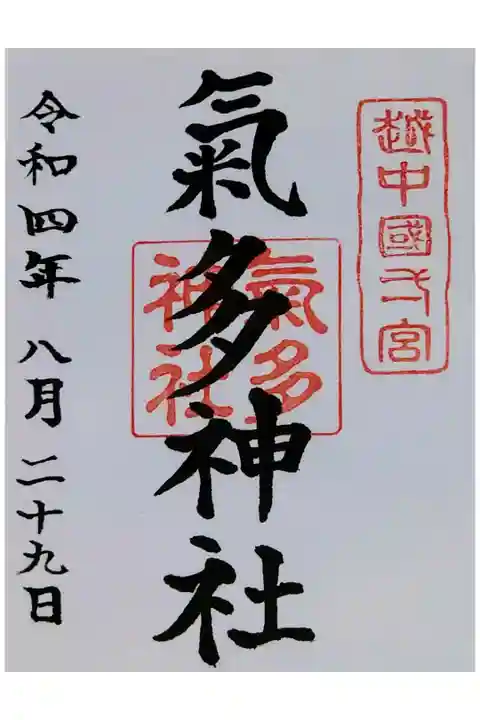 越中國弌宮
氣多神社
氣多
神社
令和四年八月二十九日